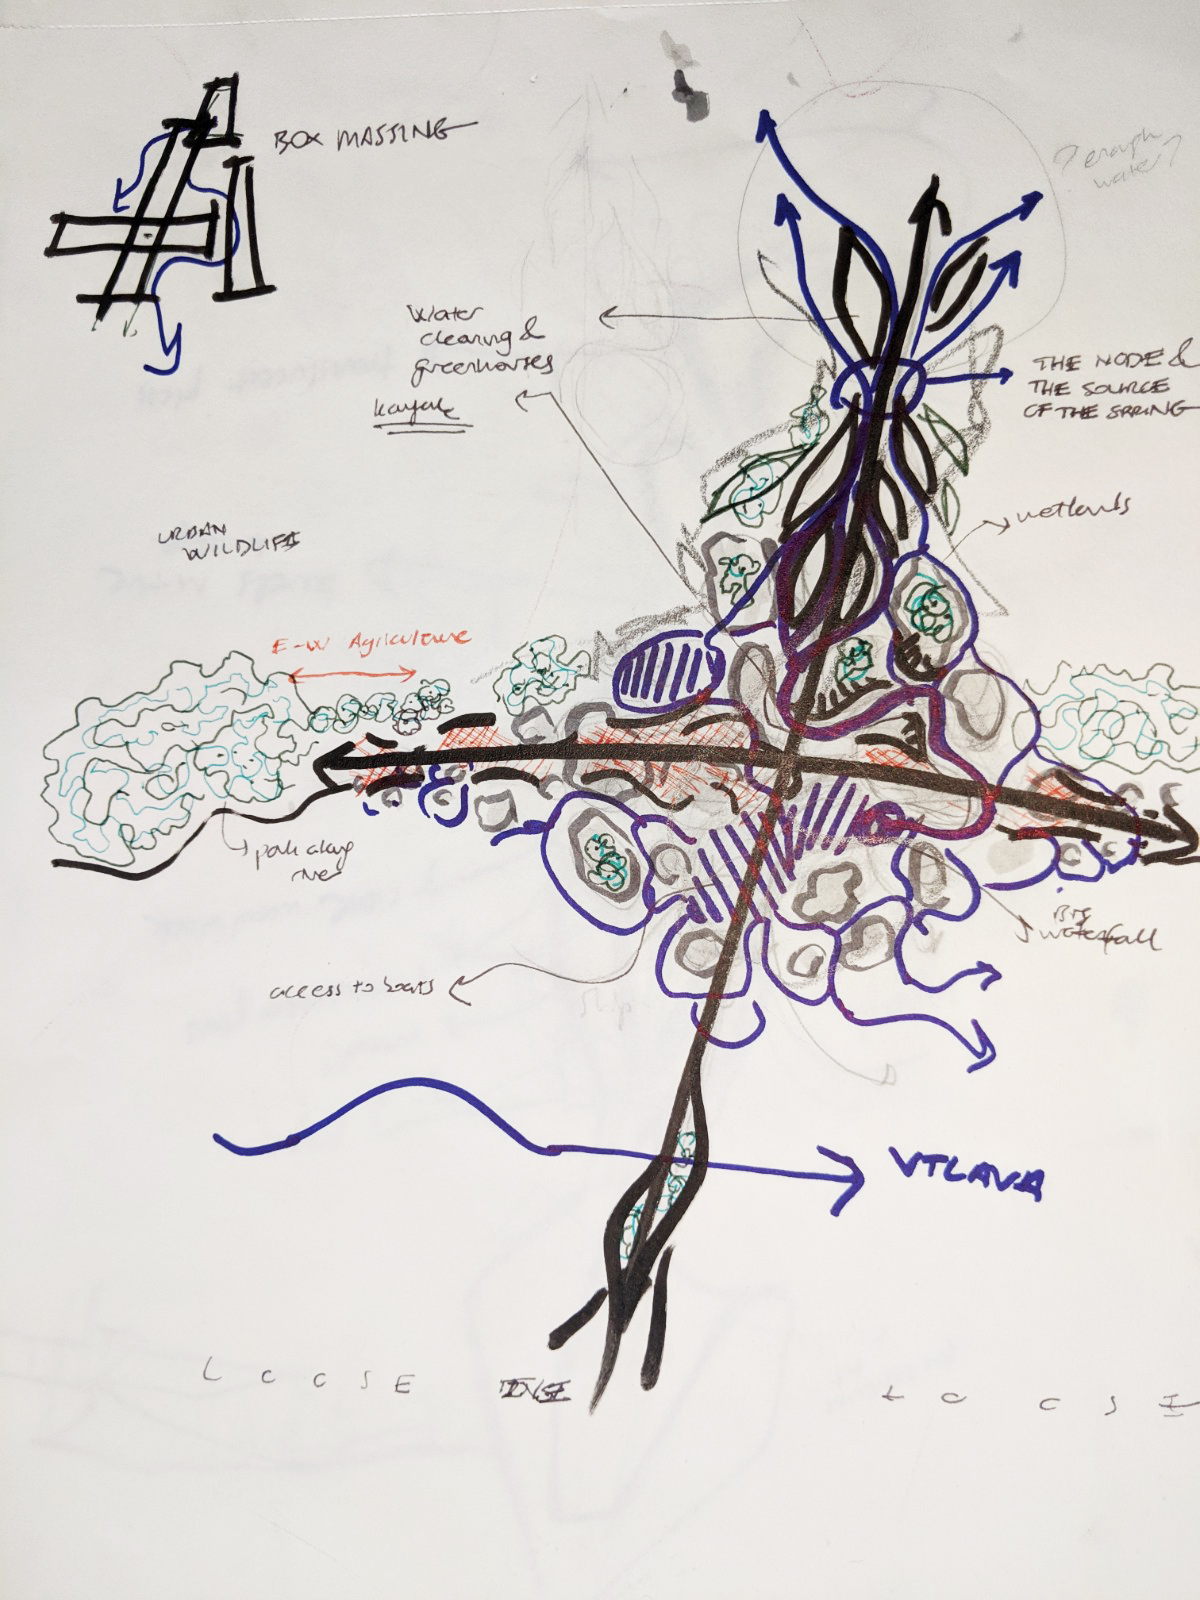 BOX MASSING
? enough
water?
Water
cleaning &
greenhouses
kayak
THE NODE &
THE SOURCE
OF THE SPRING
wetlands
URBAN
WILDLIFE
E-W Agriculture
path along
river
Big
waterfall
access to boats
ship
VTLAVA
LOOSE DENSE LOOSE